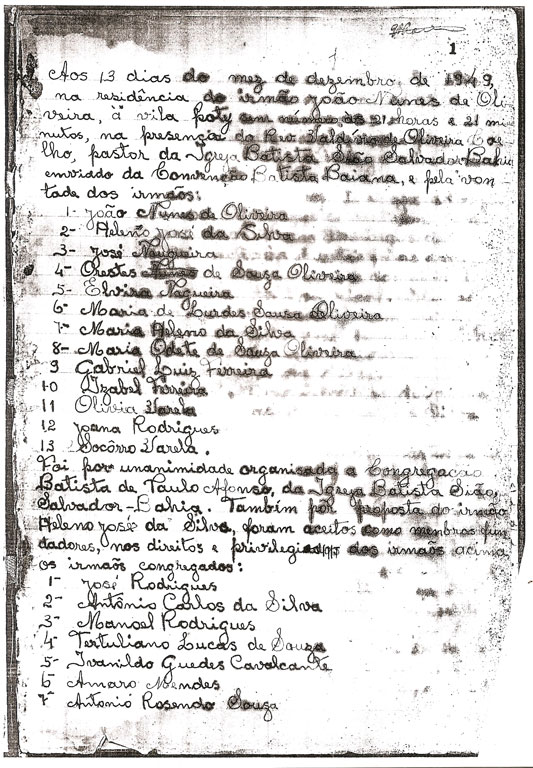 1
Aos 13 dias do mez de dezembro de 1949,
na residência do irmão João Nunes de Oli-
veira, à vila Poty em número às 21 horas e 21 mi-
nutos, na presencia do Rev. Valdívio de Oliveira Coe
lho, pastor da Igreja Batista Sião Salvador-Bahia
enviado da Convenção Batista Baiana, e pela von-
tade dos irmãos:
1- João Nunes de Oliveira
2- Heleno José da Silva
3- José Nogueira
4- Orestes Nunes de Souza Oliveira
5- Elvira Nogueira
6- Maria de Lurdes Sousa Oliveira
7- Maria Heleno da Silva
8- Maria Odete de Souza Oliveira
9 Gabriel Luiz Ferreira
10 Izabel Ferreira
11 Olivia Varela
12 Joana Rodrigues
13 Socôrro Varela.
Foi por unanimidade organisada a Congregação
Batista de Paulo Afonso, da Igreja Batista Sião,
Salvador-Bahia. Também por proposta do irmão
Heleno José da Silva, foram aceitos como membros fun
dadores, nos direitos e privilegiados dos irmãos acima
os irmãos congregados:
1- José Rodrigues
2- Antônio Carlos da Silva
3- Manoel Rodrigues
4- Tertuliano Lucas de Souza
5- Ivanildo Guedes Cavalcante
6- Amaro Mendes
7- Antonio Rosendo Souza